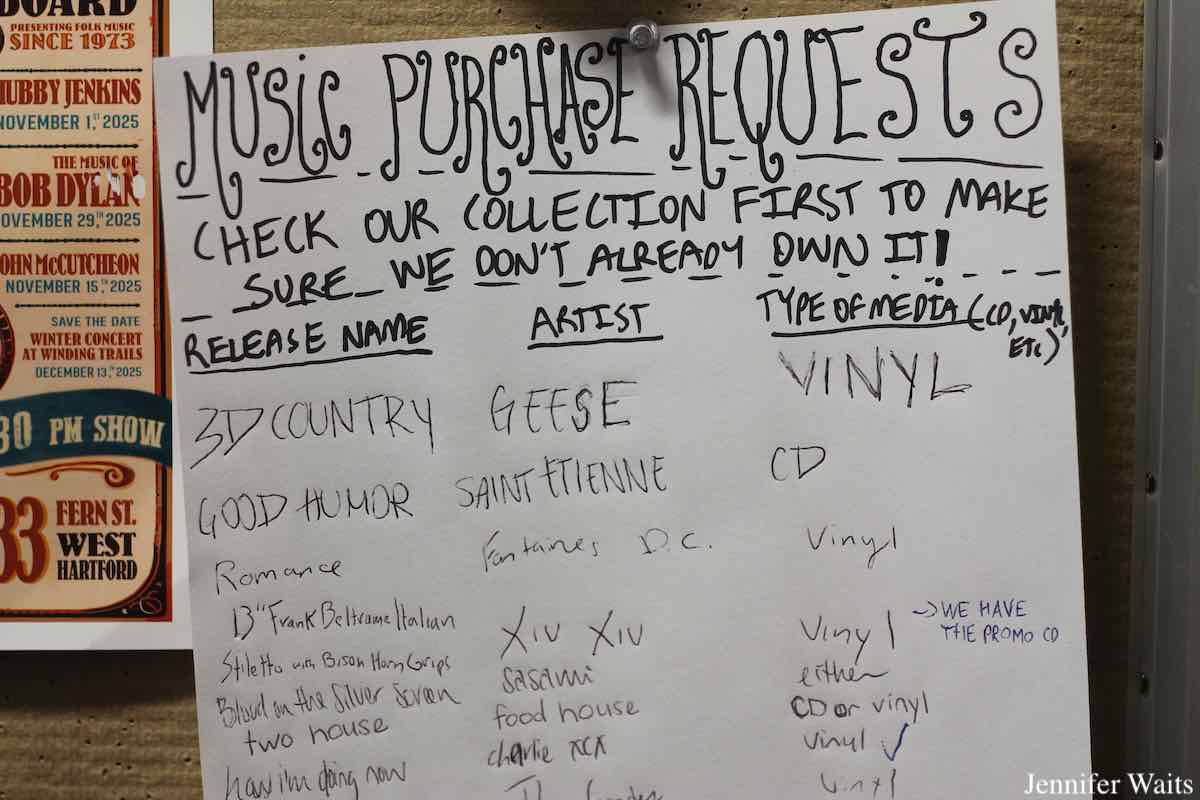 BOARD
PRESENTING FOLK MUSIC
SINCE 1973
HUBBY JENKINS
NOVEMBER 1,ST 2025
THE MUSIC OF
BOB DYLAN
NOVEMBER 29TH 2025
JOHN McCUTCHEON
NOVEMBER 15,TH 2025
SAVE THE DATE
WINTER CONCERT
AT WINDING TRAILS
DECEMBER 13,TH 2025
30 PM SHOW
33 FERN ST.
WEST
HARTFORD
MUSIC PURCHASE REQUESTS
CHECK OUR COLLECTION FIRST TO MAKE
SURE WE DON'T ALREADY OWN IT!
RELEASE NAME ARTIST TYPE OF MEDIA (CD, VINYL, ETC)
3D COUNTRY GEESE VINYL
GOOD HUMOR SAINT ETIENNE CD
Romance Fontaines D.C. Vinyl
13" Frank Beltrame Italian XIV XIV Vinyl →WE HAVE
THE PROMO CD
Stiletto with Bison Horn Grips
Blood on the Silver Screen sasami either
two house food house CD or vinyl
how i'm doing now charlie xcx vinyl ✓
vinyl
Jennifer Waits